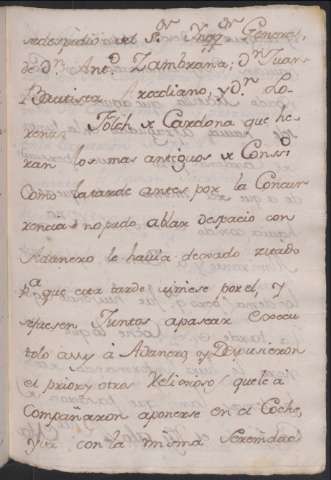 se despidio del Sr. Ynqqr. General,
de Dn. Anto. Zambrana; Dn. Juan
Bautista Arzadiano, y Dn. Lo-
renzo Folch de Cardona que he-
ran los mas antiguos de Conso.
Como la tarde antes por la Concur-
rencia no pudo ablar despacio con
Adanero le havia dexado zitado
pa. que esta tarde viniese por el, y
se fuesen Juntos apasear executo-
tolo assy â Adanero, y Dispusieron
el prior y otro Relixioso que le a
Compañaron aponerse en el Coche,
y con la misma Serenidad